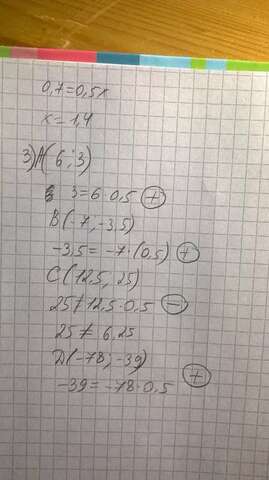 0,7=0,5x
x=1,4
3) A(6;3)
3=6·0,5 (+)
B(-7,-3,5)
-3,5=-7·(0,5) (+)
C(12,5, 25)
25≠12,5·0,5 (−)
25≠6,25
D(-78;-39)
-39=-78·0,5 (+)